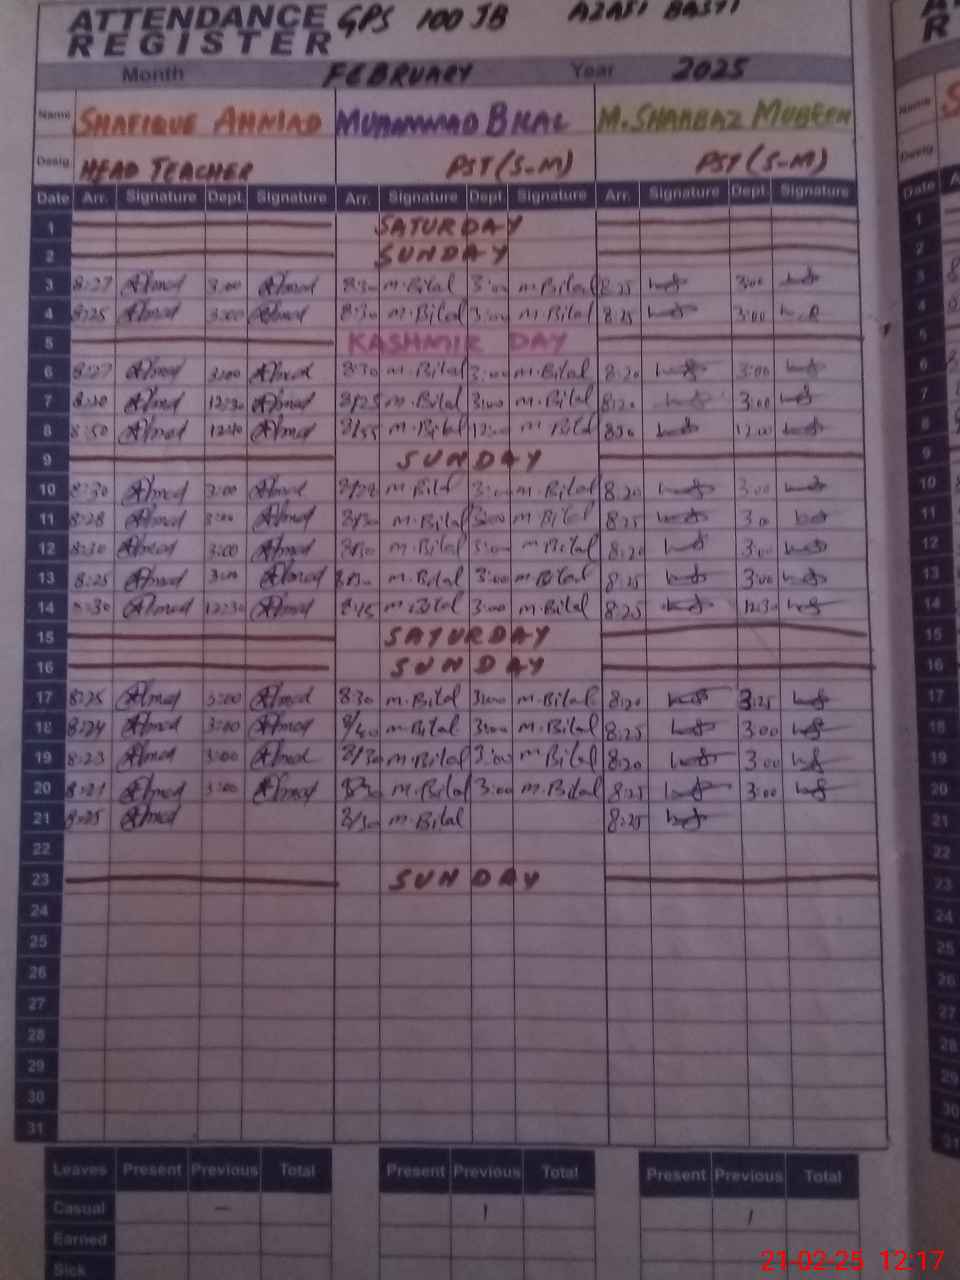 ATTENDANCE GPS 100 JB AZAFI BASTI
REGISTER
Month FEBRUARY Year 2025
Name SHAFIQUE AHMAD MUHAMMAD BILAL M. SHAHBAZ MUBEEN
Desig. HEAD TEACHER PST (S-M) PST (S-M)
Date Arr. Signature Dept. Signature Arr. Signature Dept Signature Arr. Signature Dept. Signature
1 SATURDAY
2 SUNDAY
3 8:27 Ahmad 3:00 Ahmad 8:30 m.Bilal 3:00 m.Bilal 8:25 3:00
4 8:25 Ahmad 3:00 Ahmad 8:30 m.Bilal 3:00 m.Bilal 8:25 3:00
5 KASHMIR DAY
6 8:27 Ahmad 3:00 Ahmad 8:30 m.Bilal 3:00 m.Bilal 8:20 3:00
7 Ahmad 12:30 Ahmad 8/25 m.Bilal 3:00 m.Bilal 8:20 3:00
8 8:50 Ahmad Ahmad 8/55 m.Bilal 12:00 m.Bilal 850 12:00
9 SUNDAY
10 8:30 Ahmad 3:00 Ahmad m.Bilal 3:00 m.Bilal 8:20 3:00
11 8:28 Ahmad 3:00 Ahmad 8/30 m.Bilal 3:00 m.Bilal 8:25 3:0
12 8:30 Ahmad 3:00 Ahmad 8/30 m.Bilal 3:00 m.Bilal 8:20 3:00
13 8:25 Ahmad 3:00 Ahmad 8/30 m.Bilal 3:00 m.Bilal 8:25 3:00
14 8:30 Ahmad 12:30 Ahmad 8/15 m.Bilal 3:00 m.Bilal 8:25 12:30
15 SATURDAY
16 SUNDAY
17 8:25 Ahmad 3:00 Ahmad 8:30 m.Bilal 3:00 m.Bilal 8:20 3:25
18 8:24 Ahmad 3:00 Ahmad 8/40 m.Bilal 3:00 m.Bilal 8:25 3:00
19 8:23 Ahmad 3:00 Ahmad 8/30 m.Bilal 3:00 m.Bilal 8:20 3:00
20 8:21 Ahmad 3:00 Ahmad 8:30 m.Bilal 3:00 m.Bilal 8:25 3:00
21 8:25 Ahmad 8/30 m.Bilal 8:25
22
23 SUNDAY
24
25
26
27
28
29
30
31
Leaves Present Previous Total Present Previous Total Present Previous Total
Casual – 1 1
Earned
Sick
21-02-25 12:17